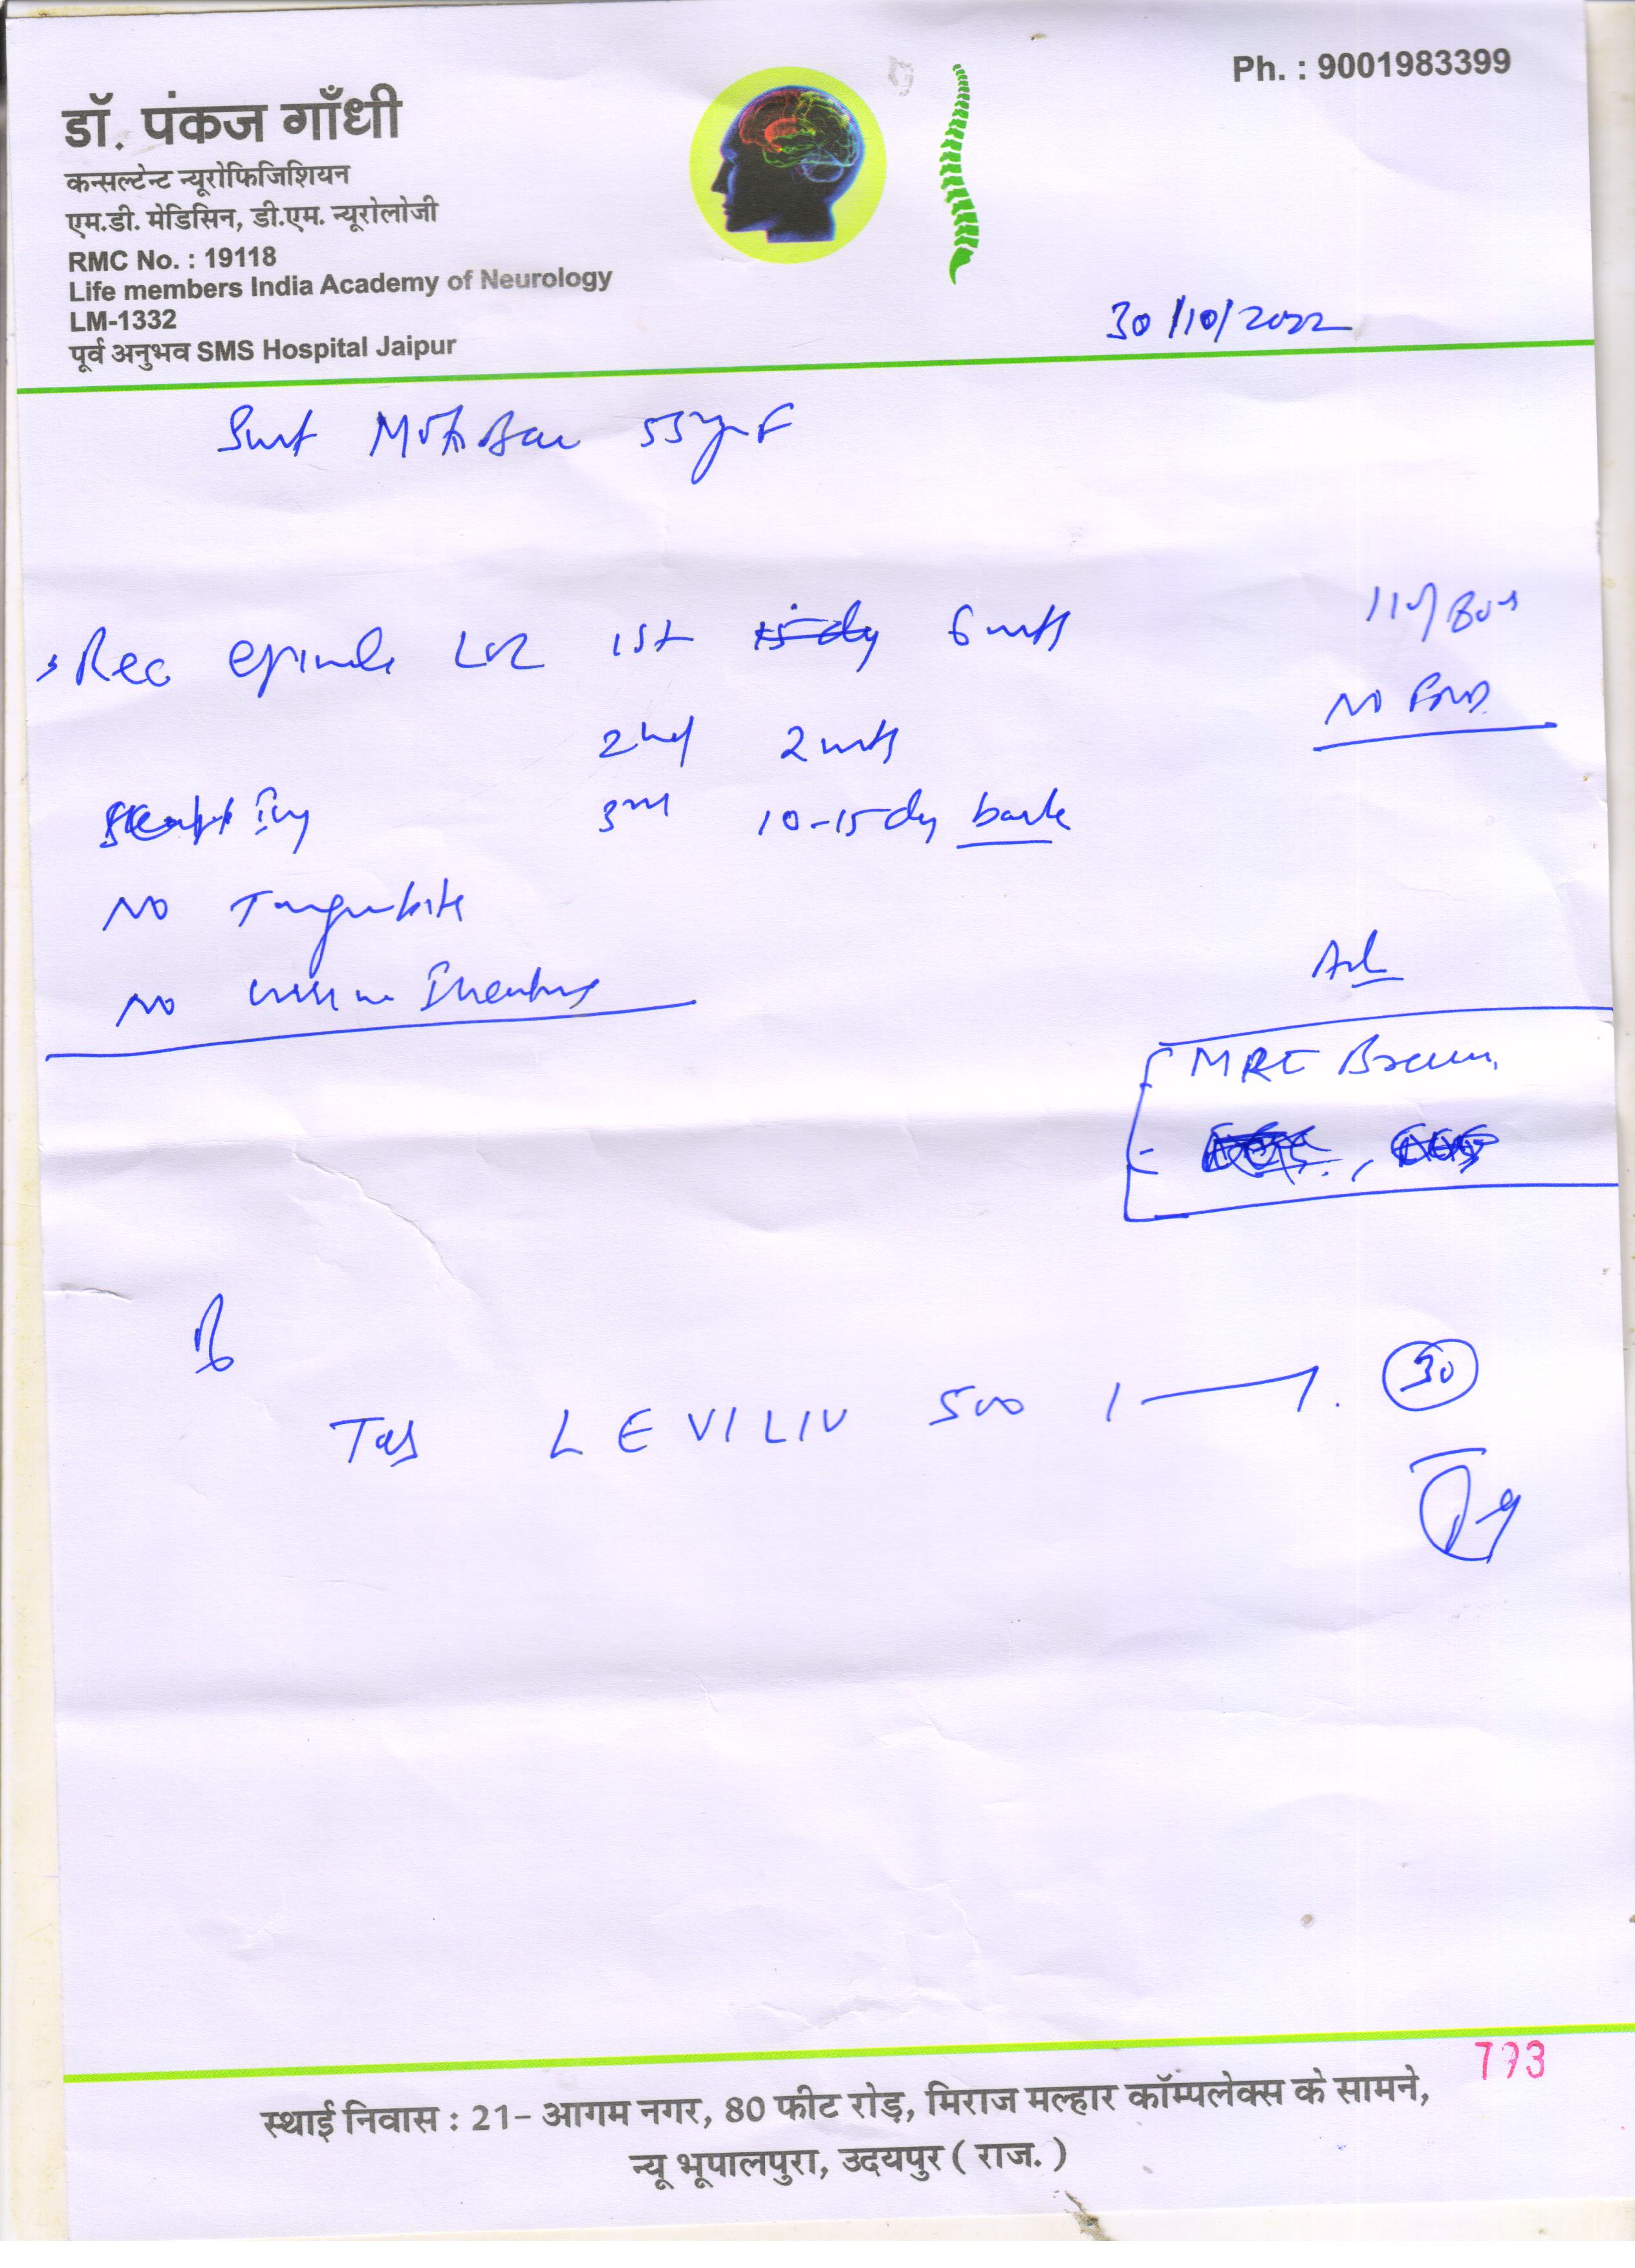 Ph. : 9001983399
डॉ. पंकज गाँधी
कन्सल्टेन्ट न्यूरोफिजिशियन
एम.डी. मेडिसिन, डी.एम. न्यूरोलोजी
RMC No. : 19118
Life members India Academy of Neurology
LM-1332
पूर्व अनुभव SMS Hospital Jaipur
30/10/2022
Smt 55yr F
Rec episode LOC 1st 6 mth
110/80
No FND
2nd 2 mth
3rd 10-15 dy back
No Tongue bite
No urine
Adv
MRI Brain
Tab LEVILIV 500 1 — 1. 30
793
स्थाई निवास : 21- आगम नगर, 80 फीट रोड़, मिराज मल्हार कॉम्पलेक्स के सामने,
न्यू भूपालपुरा, उदयपुर ( राज. )